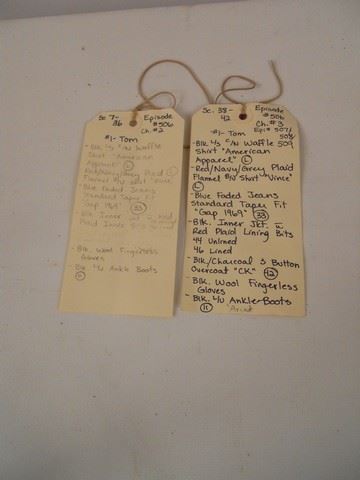 Sc 7-
Episode
#506
Ch. #2
#1- Tom
- Blk 4/5 C/N Waffle
Shirt "American
Apparel" (L)
Red/Navy/Grey Plaid (L)
Flannel
- Blue Faded Jeans
Standard Taper Fit
"Gap 1969" (33)
- Blk Inner Jkt w/ Red
Plaid
- Blk. Wool Fingerless
Gloves
- Blk 4/U Ankle Boots
(11)
Sc. 38-
42
Episode
#506
Ch. #3
Epi# 507/
508/
509
#1- Tom
- Blk 4/5 C/N Waffle
Shirt "American
Apparel" (L)
- Red/Navy/Grey Plaid
Flannel B/U Shirt "Vince"
(L)
- Blue Faded Jeans
Standard Taper Fit
"Gap 1969" (33)
- Blk. Inner Jkt. w
Red Plaid Lining Bits
44 Unlined
46 Lined
- Blk/Charcoal 3 Button
Overcoat "CK" (42)
- Blk. Wool Fingerless
Gloves
- Blk. 4/U Ankle Boots
(11)